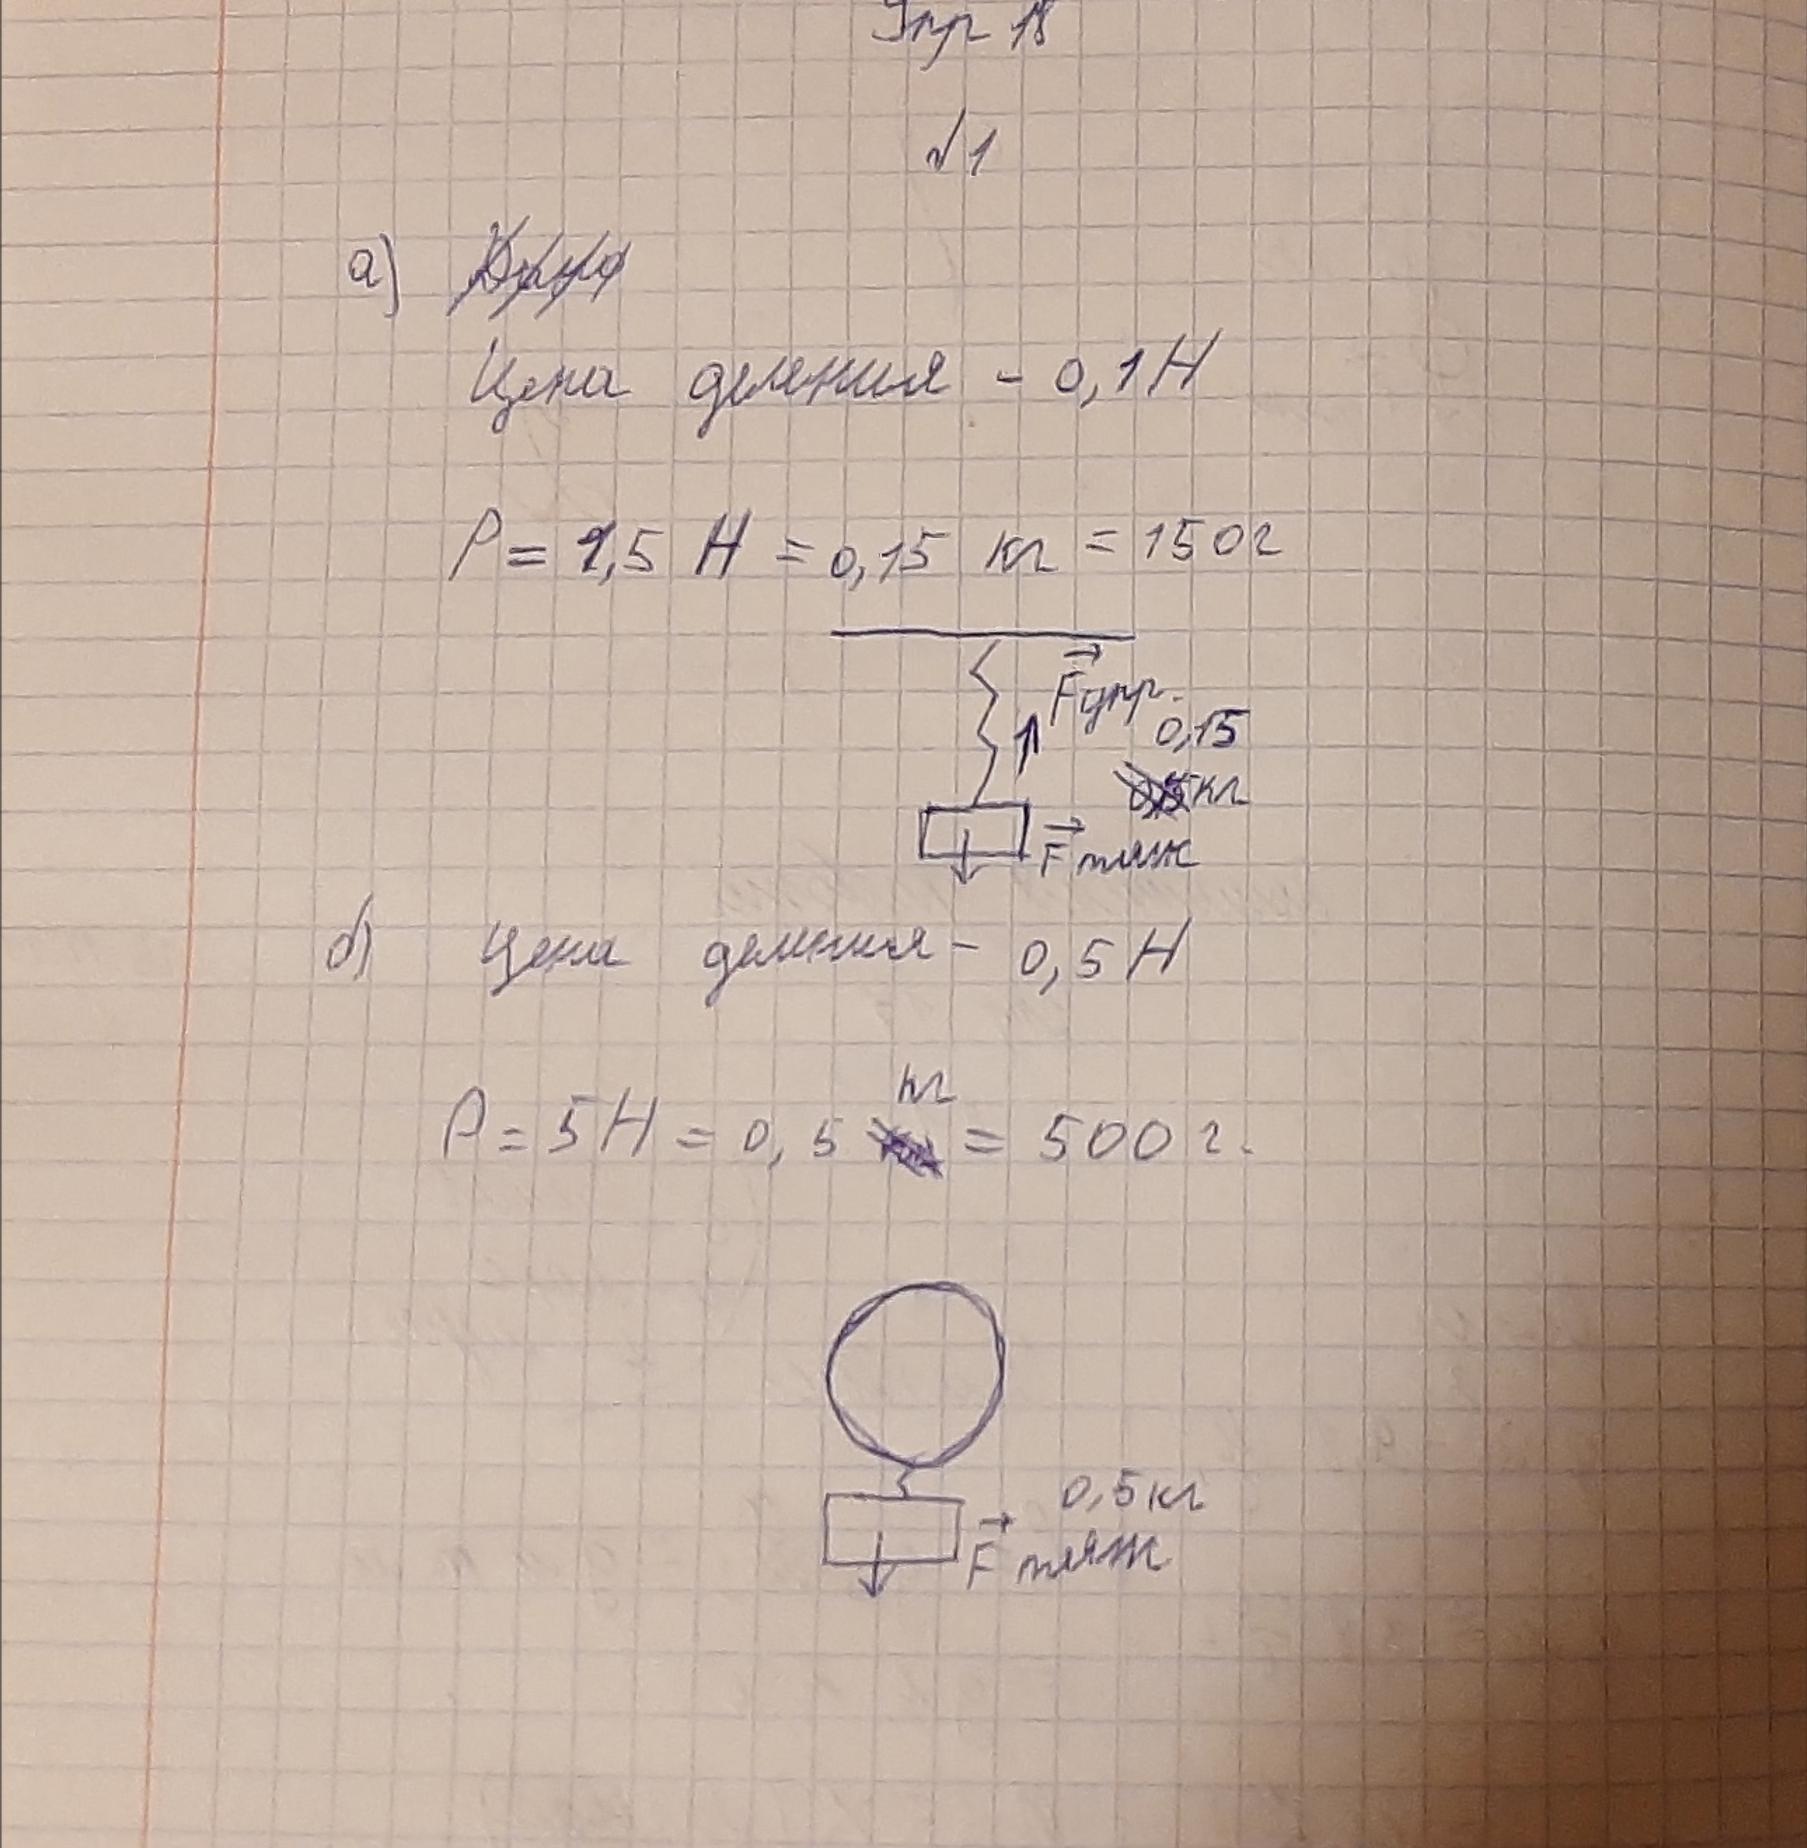 Упр 18
№1
а)
Цена деления - 0,1 Н
P = 1,5 Н = 0,15 кг = 150 г
Fупр.
0,15
кг
Fтяж
б) Цена деления - 0,5 Н
кг
P = 5 Н = 0,5 = 500 г.
0,5 кг
F тяж